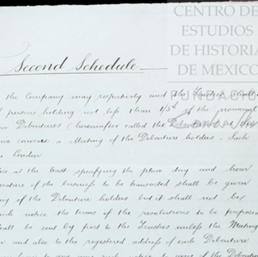 CENTRO DE
ESTUDIOS
DE HISTORIA
DE MEXICO
Second Schedule
the Company may respectively and the Trustees shall
persons holding not less than 1/5th of the nominal
Debentures (hereinafter called the
convene a Meeting of the Debenture holders. Such
London
at the least specifying the place day and hour
nature of the business to be transacted shall be given
of the Debenture holders but it shall not be
such notice the terms of the resolutions to be proposed
shall be sent by post to the Trustees unless the Meeting
and also to the registered address of each Debenture